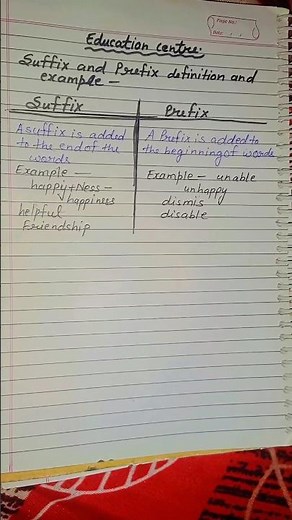 Page No.:
Date:
Education centre.
Suffix and Prefix definition and
example —
Suffix
A suffix is added
to the end of the
words
Example —
happy + Ness –
happiness
helpful
Friendship
Prefix
A Prefix is added to
the beginning of words
Example – unable
unhappy
dismis
disable